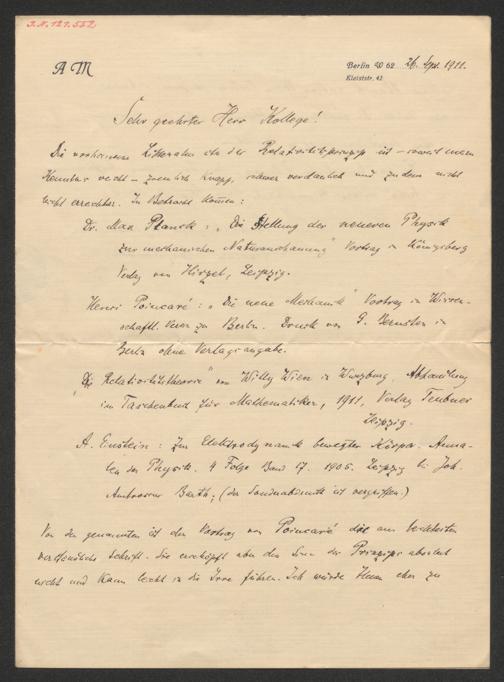 J.N. 121.552
AM
Berlin W 62 26. Spt. 1911.
Kleiststr. 42
Sehr geehrter Herr Kollege!
Die vorhandene Litteratur der Relativitätsprinzips ist – soweit meine
Kenntnis reicht – ziemlich knapp, schwer verdaulich und zudem nicht
leicht erreichbar. In Betracht kommen:
Dr. Max Planck: „Die Stellung der neueren Physik
zur mechanischen Naturanschauung" Vortrag in Königsberg
Verlag von Hirzel, Leipzig.
Henri Poincaré: „Die neue Mechanik" Vortrag im Wissen-
schaftl. Verein zu Berlin. Druck von G. Bernstein in
Berlin ohne Verlagsangabe.
„Die Relativitätstheorie" von Willy Wien in Würzburg. Abhandlung
im Taschenbuch für Mathematiker, 1911, Verlag Teubner
Leipzig.
A. Einstein: Zur Elektrodynamik bewegter Körper. Anna-
len der Physik. 4 Folge Band 17. 1905. Leipzig bei Joh.
Ambrosius Barth; (der Sonderabdruck ist vergriffen.)
Von den genannten ist der Vortrag von Poincaré die am leichtesten
verständliche Schrift. Sie erschöpft aber den Sinn des Prinzips absolut
nicht und kann leicht in die Irre führen. Ich würde Ihnen eher zu